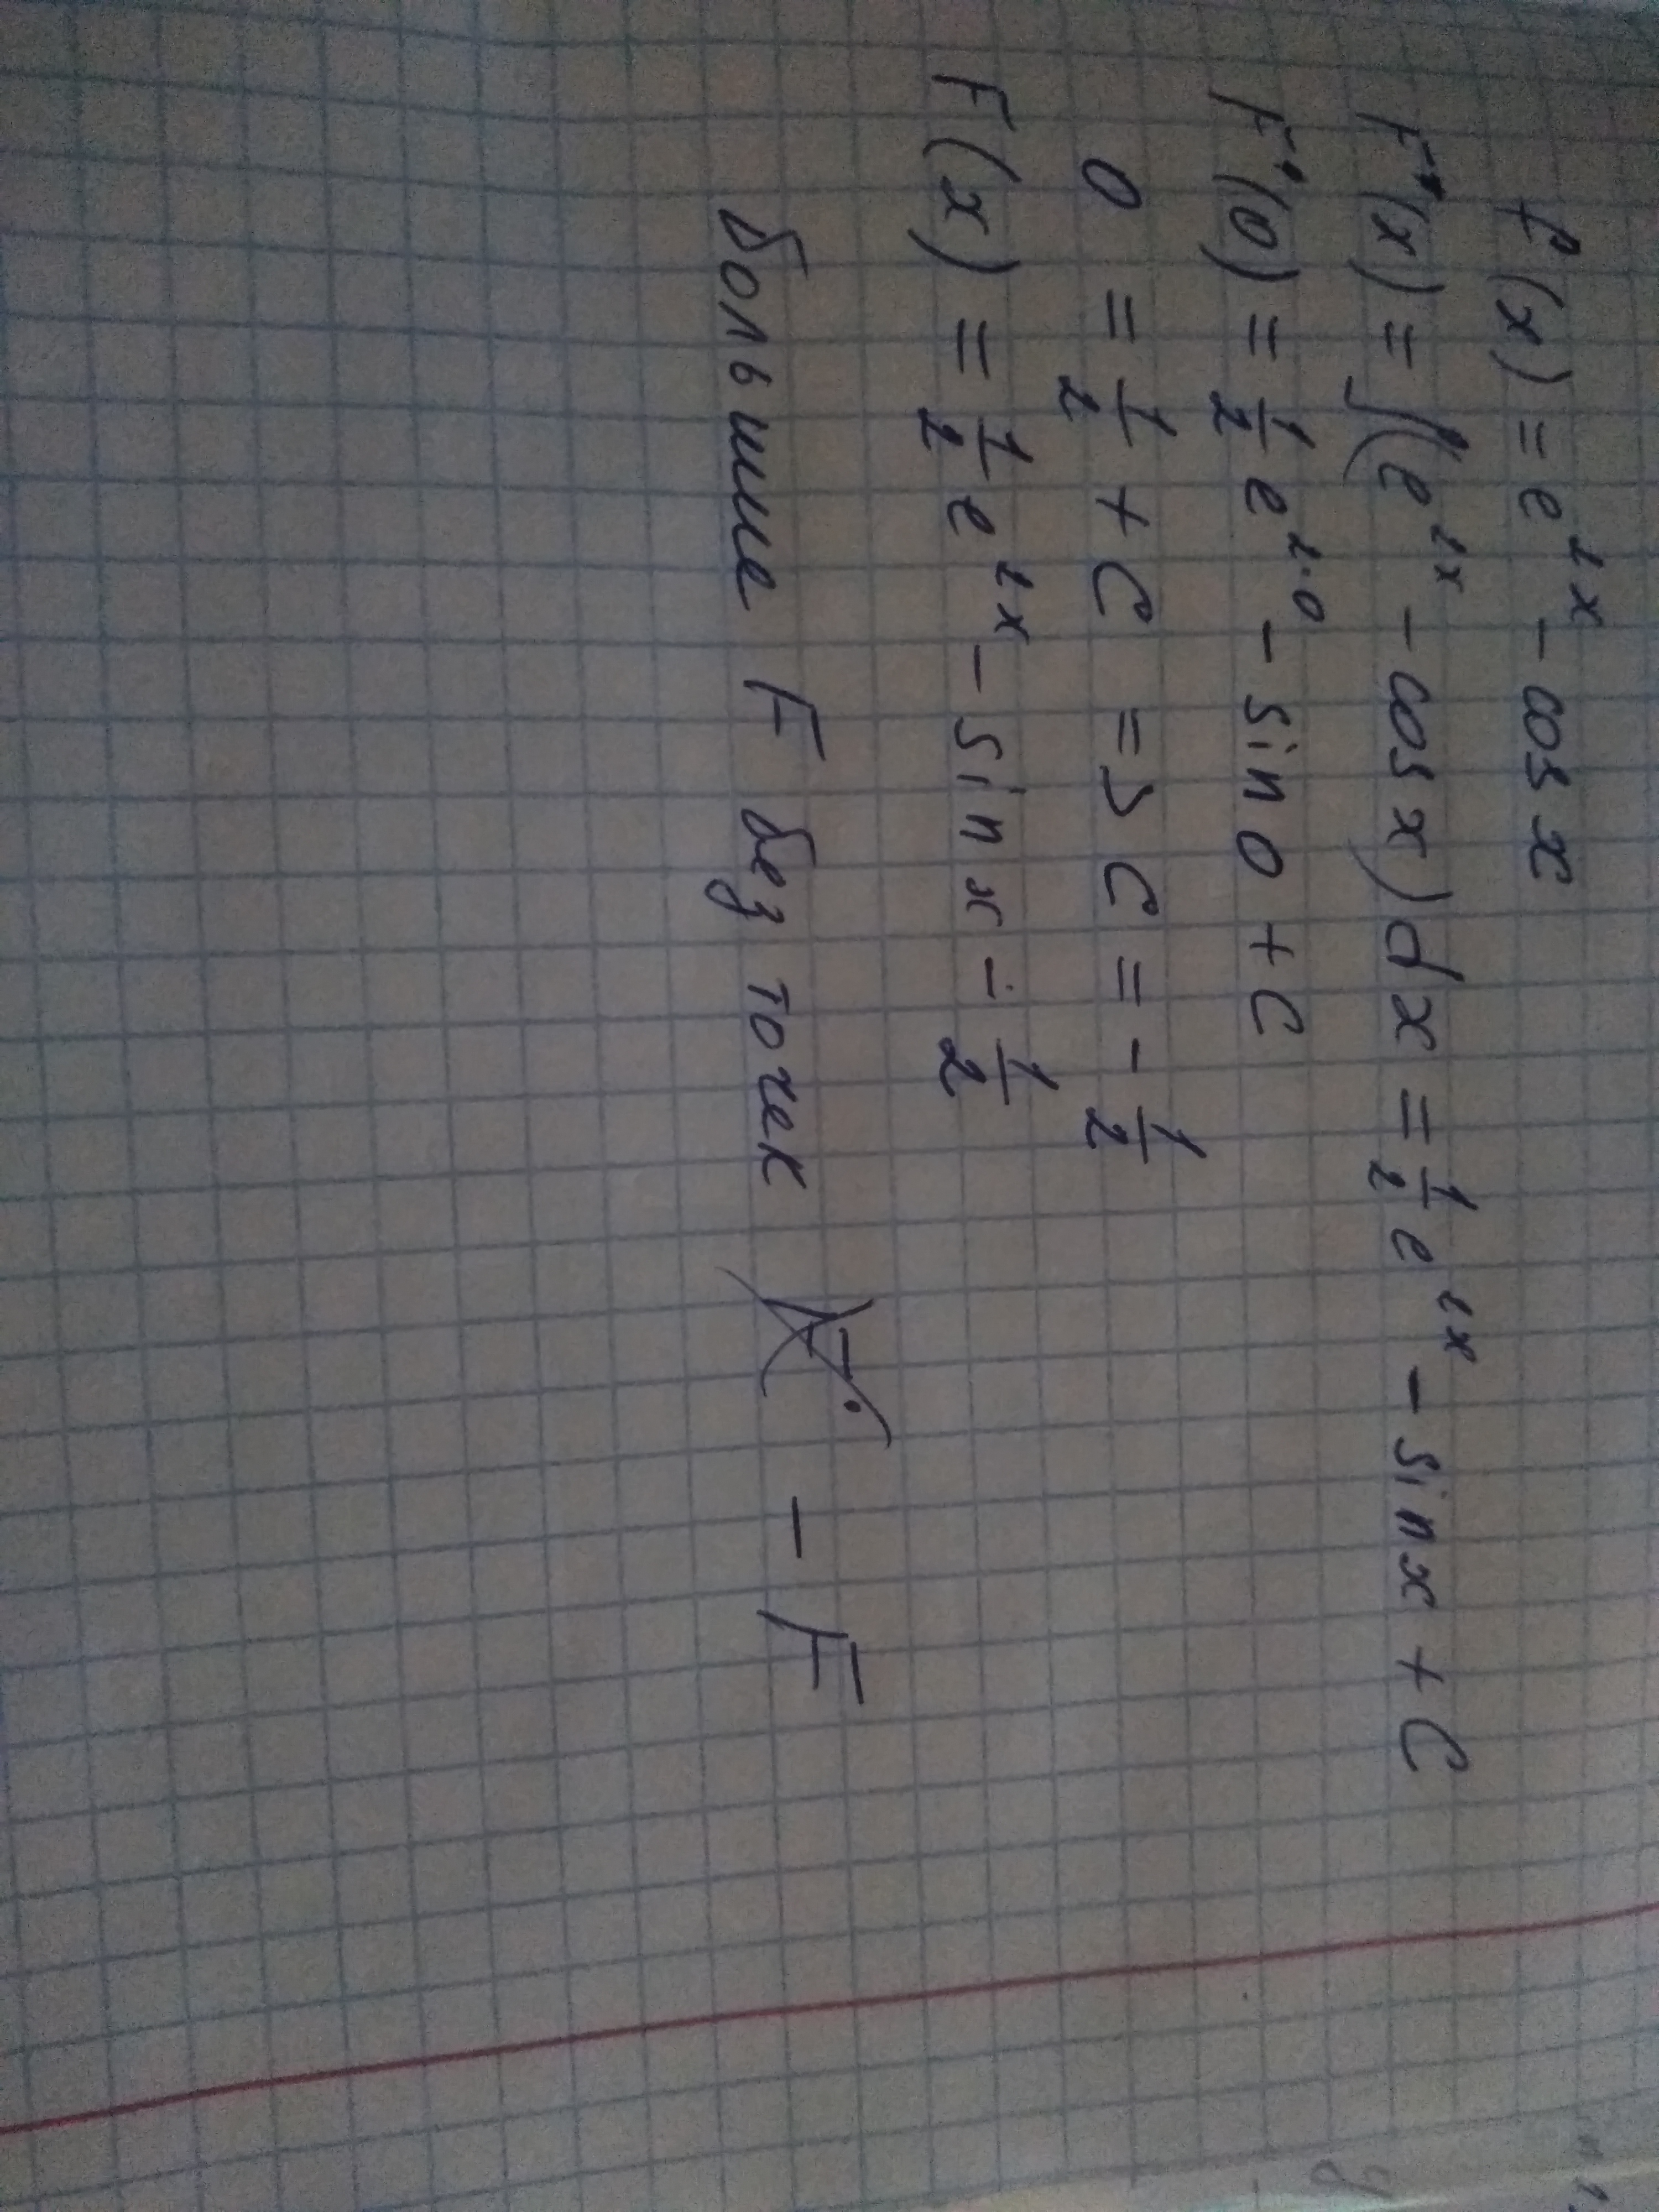 f(x) = e^{2x} - cos x
F(x) = ∫(e^{2x} - cos x)dx = 1/2 e^{2x} - sin x + C
F(0) = 1/2 e^{2·0} - sin 0 + C
0 = 1/2 + C => C = - 1/2
F(x) = 1/2 e^{2x} - sin x - 1/2
большие F без точек - F